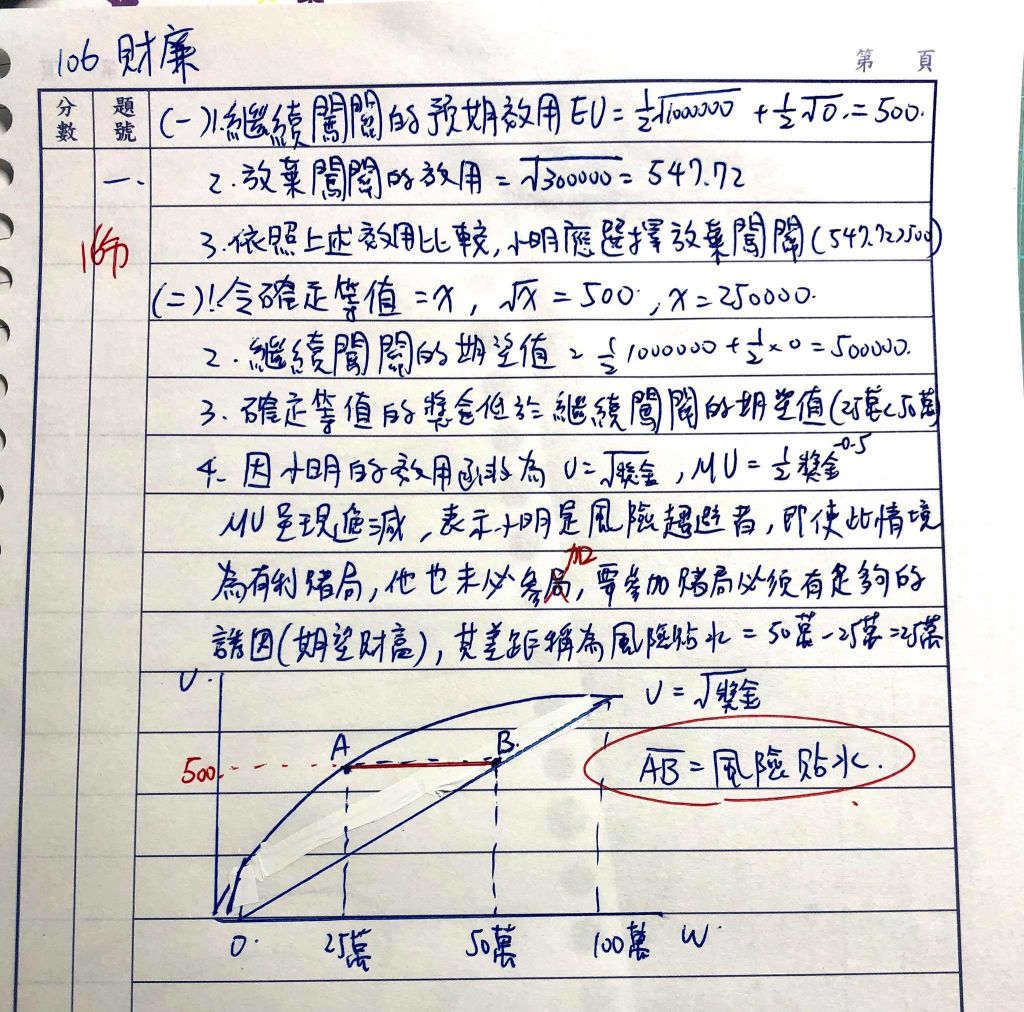 106 財廉
第 頁
分數 題號
(一)1.繼續闖關的預期效用EU=½√1000000 + ½√0.=500.
一. 2.放棄闖關的效用=√300000=547.72
16分 3.依照上述效用比較,小明應選擇放棄闖關(547.72>500)
(二)1.令確定等值=x, √x=500, x=250000.
2.繼續闖關的期望值=½1000000+½×0=500000.
3.確定等值的獎金低於繼續闖關的期望值(25萬<50萬)
4.因小明的效用函數為U=√獎金,MU=½獎金^-0.5
MU呈現遞減,表示小明是風險趨避者,即使此情境
為有利賭局,他也未必參加,要參加賭局必須有足夠的
誘因(期望財富),其差距稱為風險貼水=50萬-25萬=25萬
U
U=√獎金
A B.
500
AB=風險貼水.
0. 25萬 50萬 100萬 W.